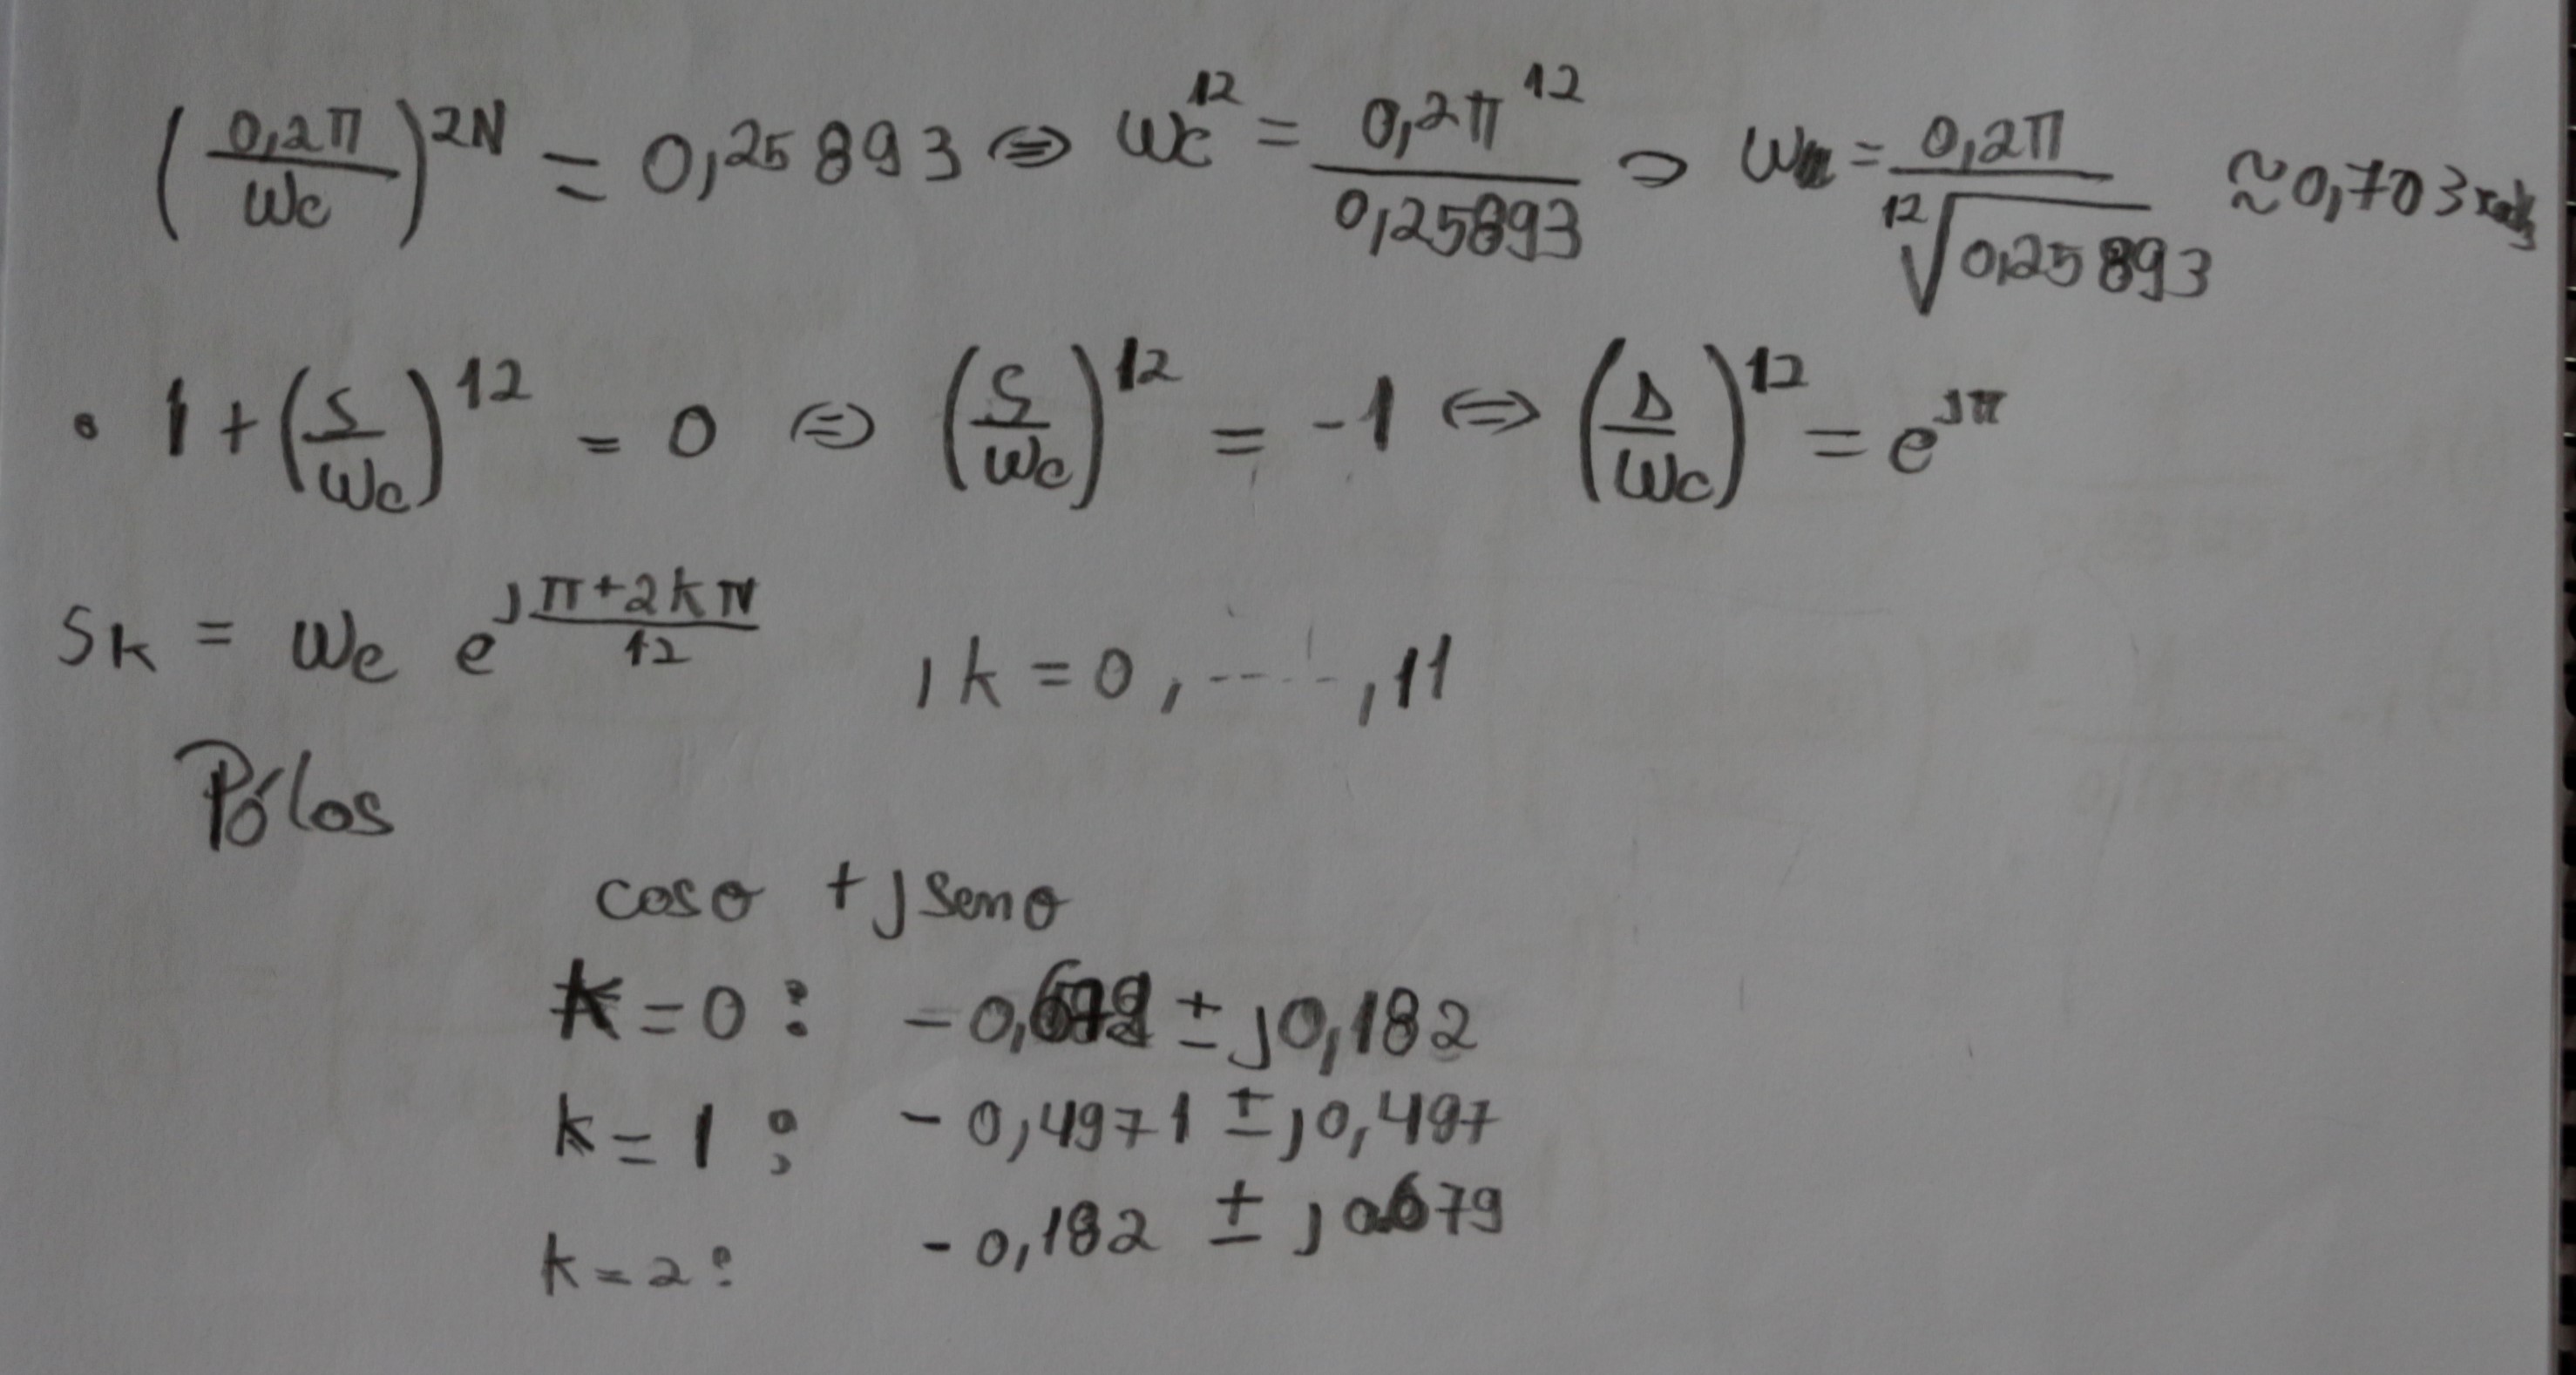 (0,2π/Wc)^2N = 0,25893 ⇔ Wc^12 = 0,2π^12/0,25893 ⇒ W = 0,2π/¹²√0,25893 ≈ 0,703
• 1 + (S/Wc)^12 = 0 ⇔ (S/Wc)^12 = -1 ⇔ (s/Wc)^12 = e^jπ
Sk = Wc e^j(π+2kπ)/12 , k = 0, ..... , 11
Pólos
cosθ + j senθ
k = 0 : - 0,679 ± j0,182
k = 1 : - 0,4971 ± j0,497
k = 2 : - 0,182 ± j0.679